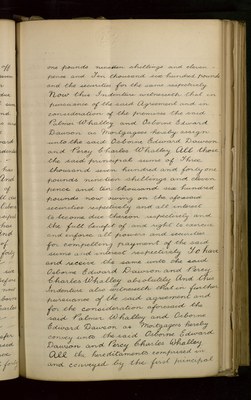 one pounds nineteen shillings and eleven
pence and Ten thousand six hundred pounds
and the securities for the same respectively
Now this Indenture witnesseth that in
pursuance of the said Agreement and in
consideration of the premises the said
Palmer Whalley and Osborne Edward
Dawson as Mortgagees hereby assign
unto the said Osborne Edward Dawson
and Percy Charles Whalley All those
the said principal sums of Three
thousand seven hundred and forty one
pounds nineteen shillings and eleven
pence and ten thousand six hundred
pounds now owing on the aforesaid
securities respectively and all interest
to become due thereon respectively and
the full benefit of and right to exercise
and enforce all powers and securities
for compelling payment of the said
sums and interest respectively To have
and receive the same unto the said
Osborne Edward Dawson and Percy
Charles Whalley absolutely And this
Indenture also witnesseth that in further
pursuance of the said agreement and
for the consideration aforesaid the
said Palmer Whalley and Osborne
Edward Dawson as Mortgagees hereby
convey unto the said Osborne Edward
Dawson and Percy Charles Whalley
All the hereditaments comprised in
and conveyed by the first principal